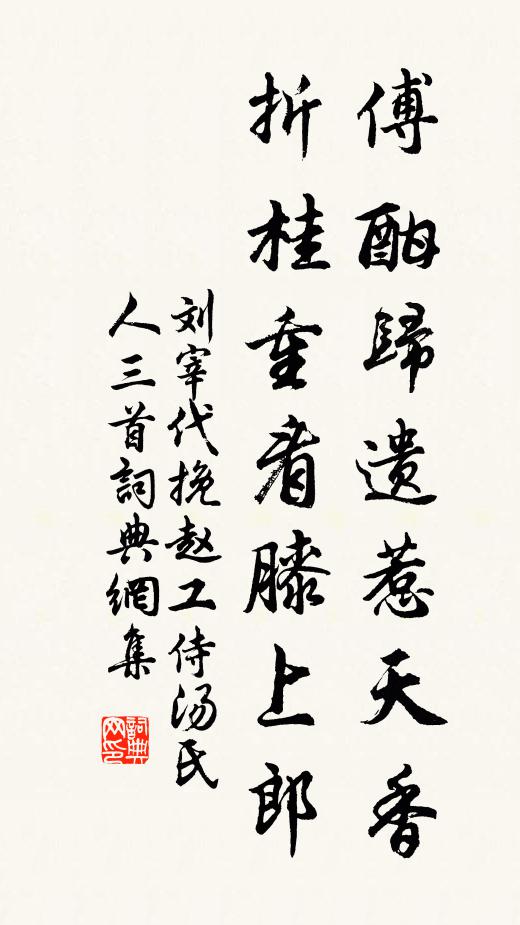 傅酣歸遗惹天香
折桂重看膝上郎
刘宰代挽赵工侍汤氏
人三首詞典網集
詞典网印